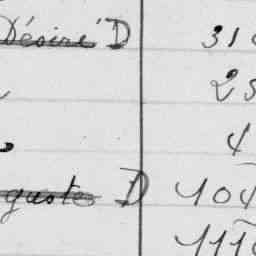 Désiré D 31
25
4
guste D 104
111